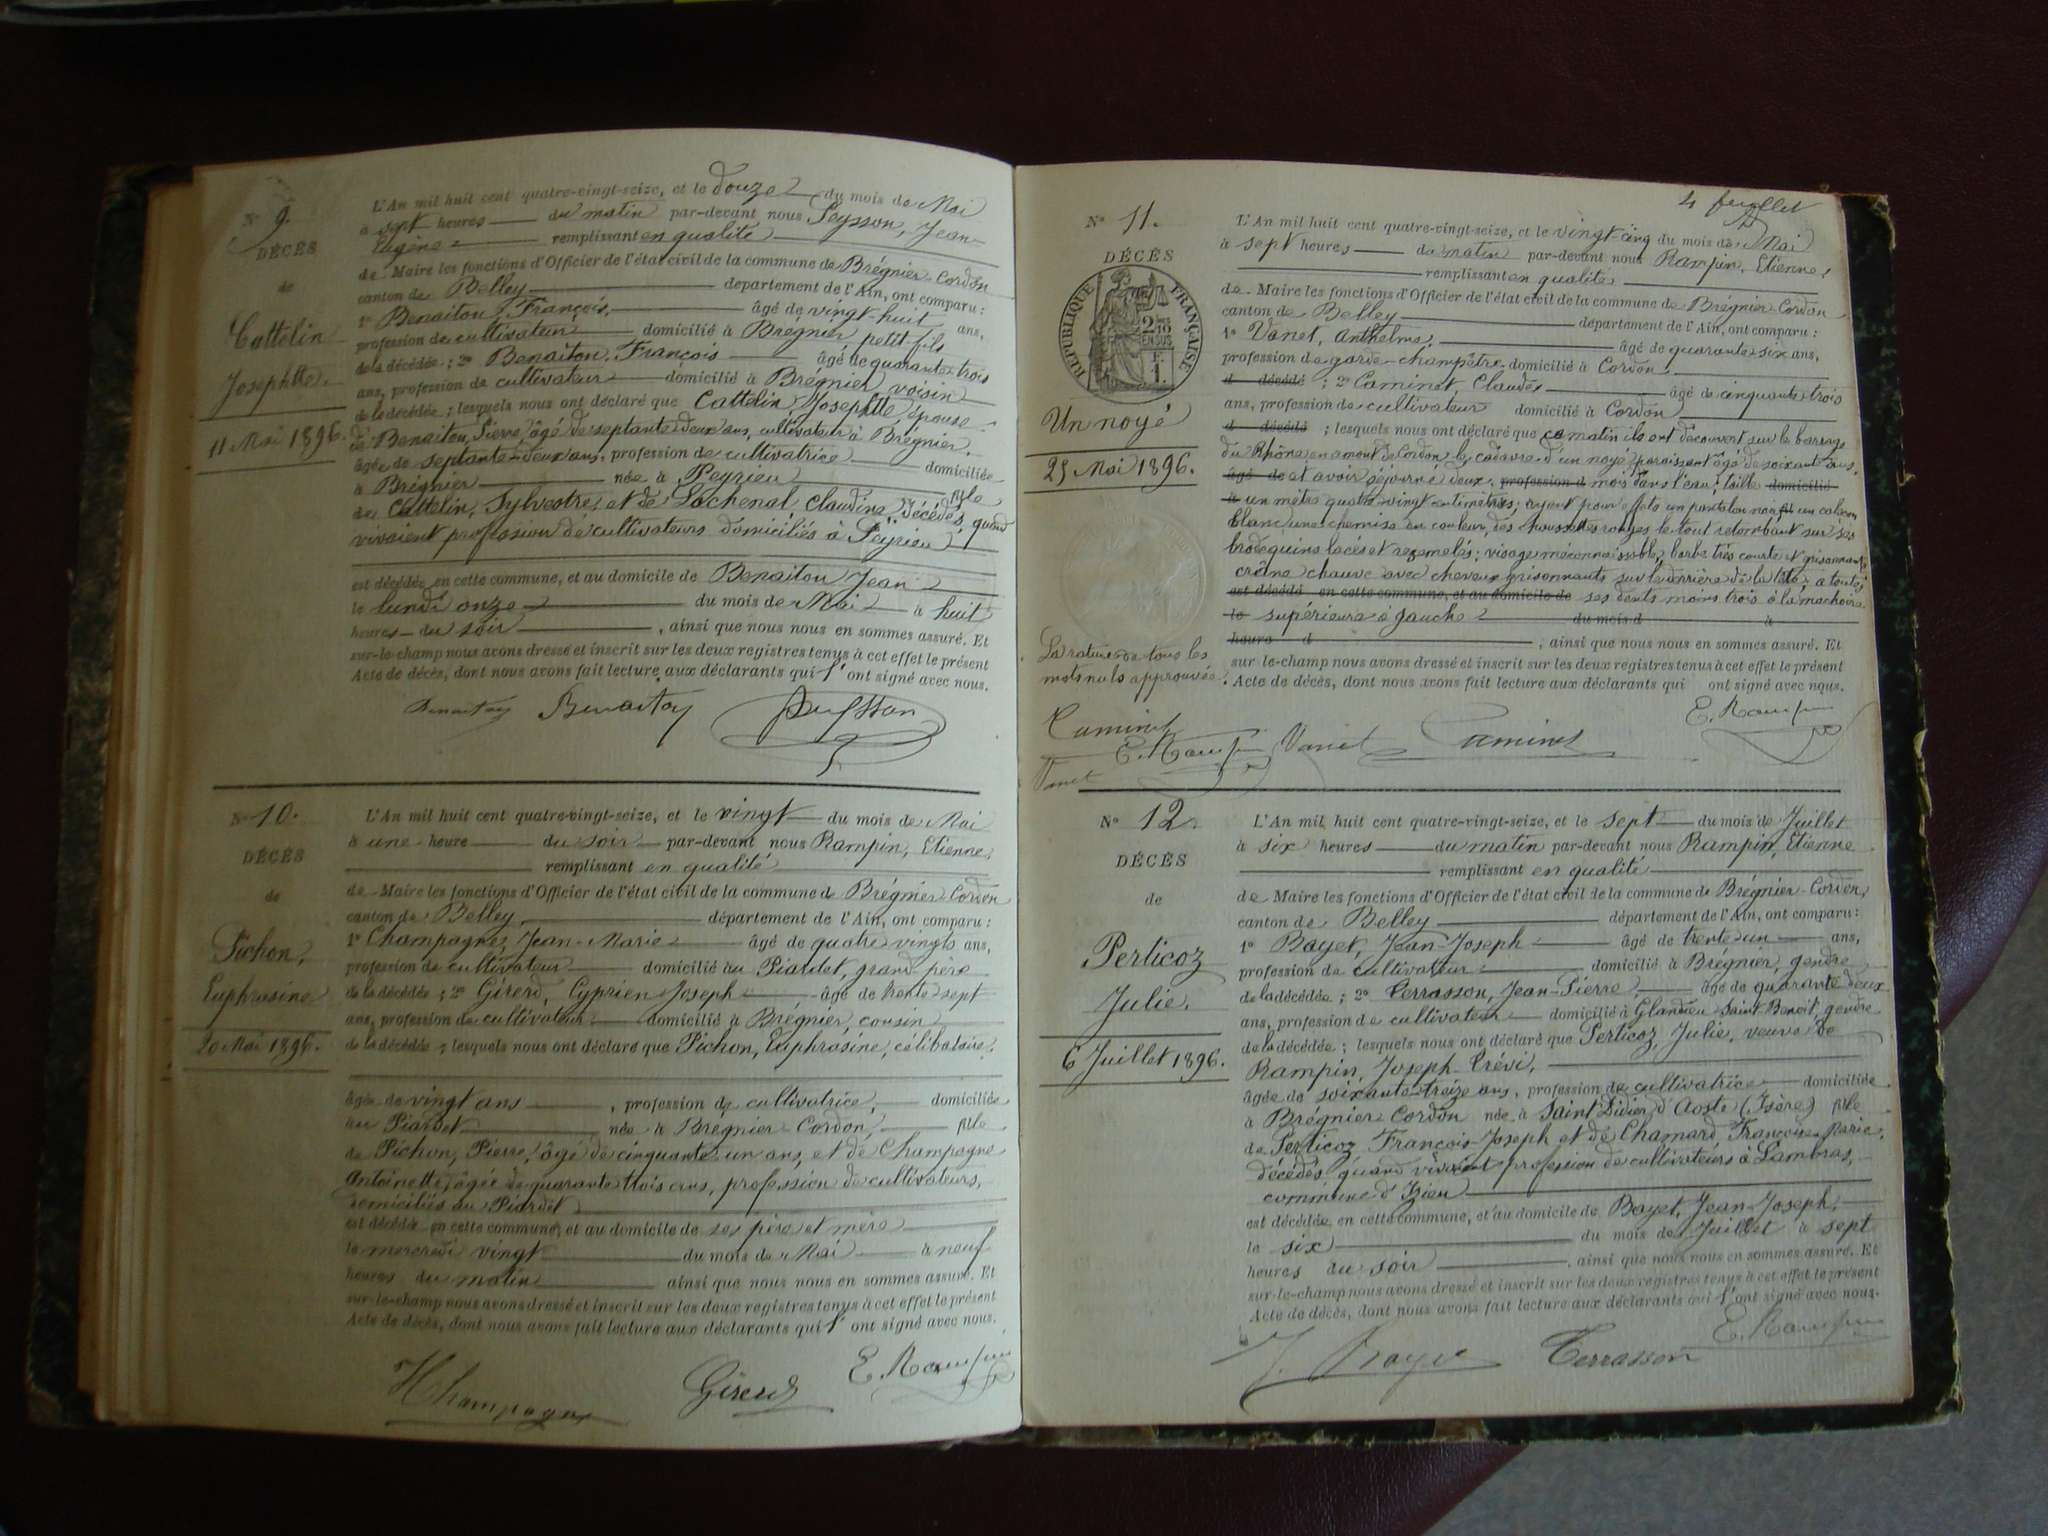 N° 9.
DÉCÈS
de
Cattelin
Josephtte.
11 Mai 1896.
L'An mil huit cent quatre-vingt-seize, et le douze du mois de Mai
à sept heures du matin par-devant nous Peysson, Jean-
Eugène remplissant en qualité
de Maire les fonctions d'Officier de l'état civil de la commune de Brégnier-Cordon
canton de Belley département de l'Ain, ont comparu :
1° Benaiton, François, âgé de vingt-huit ans,
profession de cultivateur domicilié à Brégnier petit fils
de la décédée ; 2° Benaiton, François âgé de quarante trois
ans, profession de cultivateur domicilié à Brégnier, voisin
de la décédée ; lesquels nous ont déclaré que Cattelin Josephtte épouse
de Benaiton, Pierre, âgé de septante deux ans, cultivateur à Brégnier,
âgée de septante-deux ans, profession de cultivatrice domiciliée
à Brégnier née à Peyrieu fille
de Cattelin, Sylvestre, et de Lachenal Claudine décédés, quand
vivaient profession de cultivateurs domiciliés à Peyrieu
est décédée en cette commune, et au domicile de Benaiton Jean
le lundi onze du mois de Mai à huit
heures du soir , ainsi que nous nous en sommes assuré. Et
sur-le-champ nous avons dressé et inscrit sur les deux registres tenus à cet effet le présent
Acte de décès, dont nous avons fait lecture aux déclarants qui l'ont signé avec nous.
Benaiton Benaiton Peysson
N° 10.
DÉCÈS
de
Pichon,
Euphrasine
20 Mai 1896.
L'An mil huit cent quatre-vingt-seize, et le vingt du mois de Mai
à une heure du soir par-devant nous Rampin, Etienne,
remplissant en qualité
de Maire les fonctions d'Officier de l'état civil de la commune de Brégnier-Cordon
canton de Belley, département de l'Ain, ont comparu :
1° Champagne, Jean-Marie âgé de quatre vingts ans,
profession de cultivateur domicilié au Piardet, grand père
de la décédée ; 2° Girerd, Cyprien Joseph âgé de trente sept
ans, profession de cultivateur domicilié à Brégnier, cousin
de la décédée ; lesquels nous ont déclaré que Pichon, Euphrasine, célibataire,
âgée de vingt ans , profession de cultivatrice, domiciliée
au Piardet née à Brégnier-Cordon, fille
de Pichon, Pierre, âgé de cinquante un ans, et de Champagne
Antoinette, âgée de quarante trois ans, profession de cultivateurs,
domiciliés au Piardet
est décédée en cette commune, et au domicile de ses père et mère
le mercredi vingt du mois de Mai à neuf
heures du matin ainsi que nous nous en sommes assuré. Et
sur-le-champ nous avons dressé et inscrit sur les deux registres tenus à cet effet le présent
Acte de décès, dont nous avons fait lecture aux déclarants qui l'ont signé avec nous.
Champagne Girerd E. Rampin
4 feuillet
N° 11.
DÉCÈS
RÉPUBLIQUE FRANÇAISE
2/10 EN SUS
Un noyé
25 Mai 1896.
La rature de tous les
mots nuls approuvée.
Caminet
E. Rampin
Vanet
L'An mil huit cent quatre-vingt-seize, et le vingt cinq du mois de Mai
à sept heures du matin par-devant nous Rampin, Etienne,
remplissant en qualité
de Maire les fonctions d'Officier de l'état civil de la commune de Brégnier-Cordon
canton de Belley département de l'Ain, ont comparu :
1° Vanet, Anthelme, âgé de quarante six ans,
profession de garde-champêtre domicilié à Cordon
d décédé ; 2° Caminet, Claude âgé de cinquante trois
ans, profession de cultivateur domicilié à Cordon
d décédé ; lesquels nous ont déclaré que ce matin ils ont découvert sur le
du Rhône en amont de Cordon le cadavre d'un noyé paraissant âgé de soixante ans,
âgé de et avoir séjourné deux profession d mois dans l'eau ; taille domicilié
à un mètre quatre vingt centimètres ; ayant pour effets un pantalon noir un caleçon
blanc une chemise en couleur, des chaussettes rouges le tout retombant sur ses
brodequins lacés et resemelés ; visage méconnaissable, barbe très courte et grisonnante
crâne chauve avec cheveux grisonnants sur le derrière de la tête, a toutes
est décédé en cette commune, et au domicile de ses dents moins trois à la machoire
le supérieure à gauche du mois d à
heure d , ainsi que nous nous en sommes assuré. Et
sur-le-champ nous avons dressé et inscrit sur les deux registres tenus à cet effet le présent
Acte de décès, dont nous avons fait lecture aux déclarants qui ont signé avec nous.
Vanet Caminet E. Rampin
N° 12.
DÉCÈS
de
Perticoz
Julie.
6 Juillet 1896.
L'An mil huit cent quatre-vingt-seize, et le sept du mois de Juillet
à six heures du matin par-devant nous Rampin, Etienne
remplissant en qualité
de Maire les fonctions d'Officier de l'état civil de la commune de Brégnier-Cordon,
canton de Belley département de l'Ain, ont comparu :
1° Bayet, Jean-Joseph âgé de trente un ans,
profession de cultivateur domicilié à Brégnier, gendre
de la décédée ; 2° Terrasson, Jean-Pierre, âgé de quarante deux
ans, profession de cultivateur domicilié à Glandieu Saint Benoit, gendre
de la décédée ; lesquels nous ont déclaré que Perticoz, Julie, veuve de
Rampin, Joseph-Trévi,
âgée de soixante-treize ans, profession de cultivatrice domiciliée
à Brégnier Cordon née à Saint Didier d'Aoste (Isère) fille
de Perticoz, François-Joseph et de Chamard, Françoise-Marie,
décédés quand vivaient profession de cultivateurs à Lambras,
commune d'Izieu
est décédée en cette commune, et au domicile de Bayet, Jean-Joseph,
le six du mois de Juillet à sept
heures du soir , ainsi que nous nous en sommes assuré. Et
sur-le-champ nous avons dressé et inscrit sur les deux registres tenus à cet effet le présent
Acte de décès, dont nous avons fait lecture aux déclarants qui l'ont signé avec nous.
J. Bayet Terrasson E. Rampin